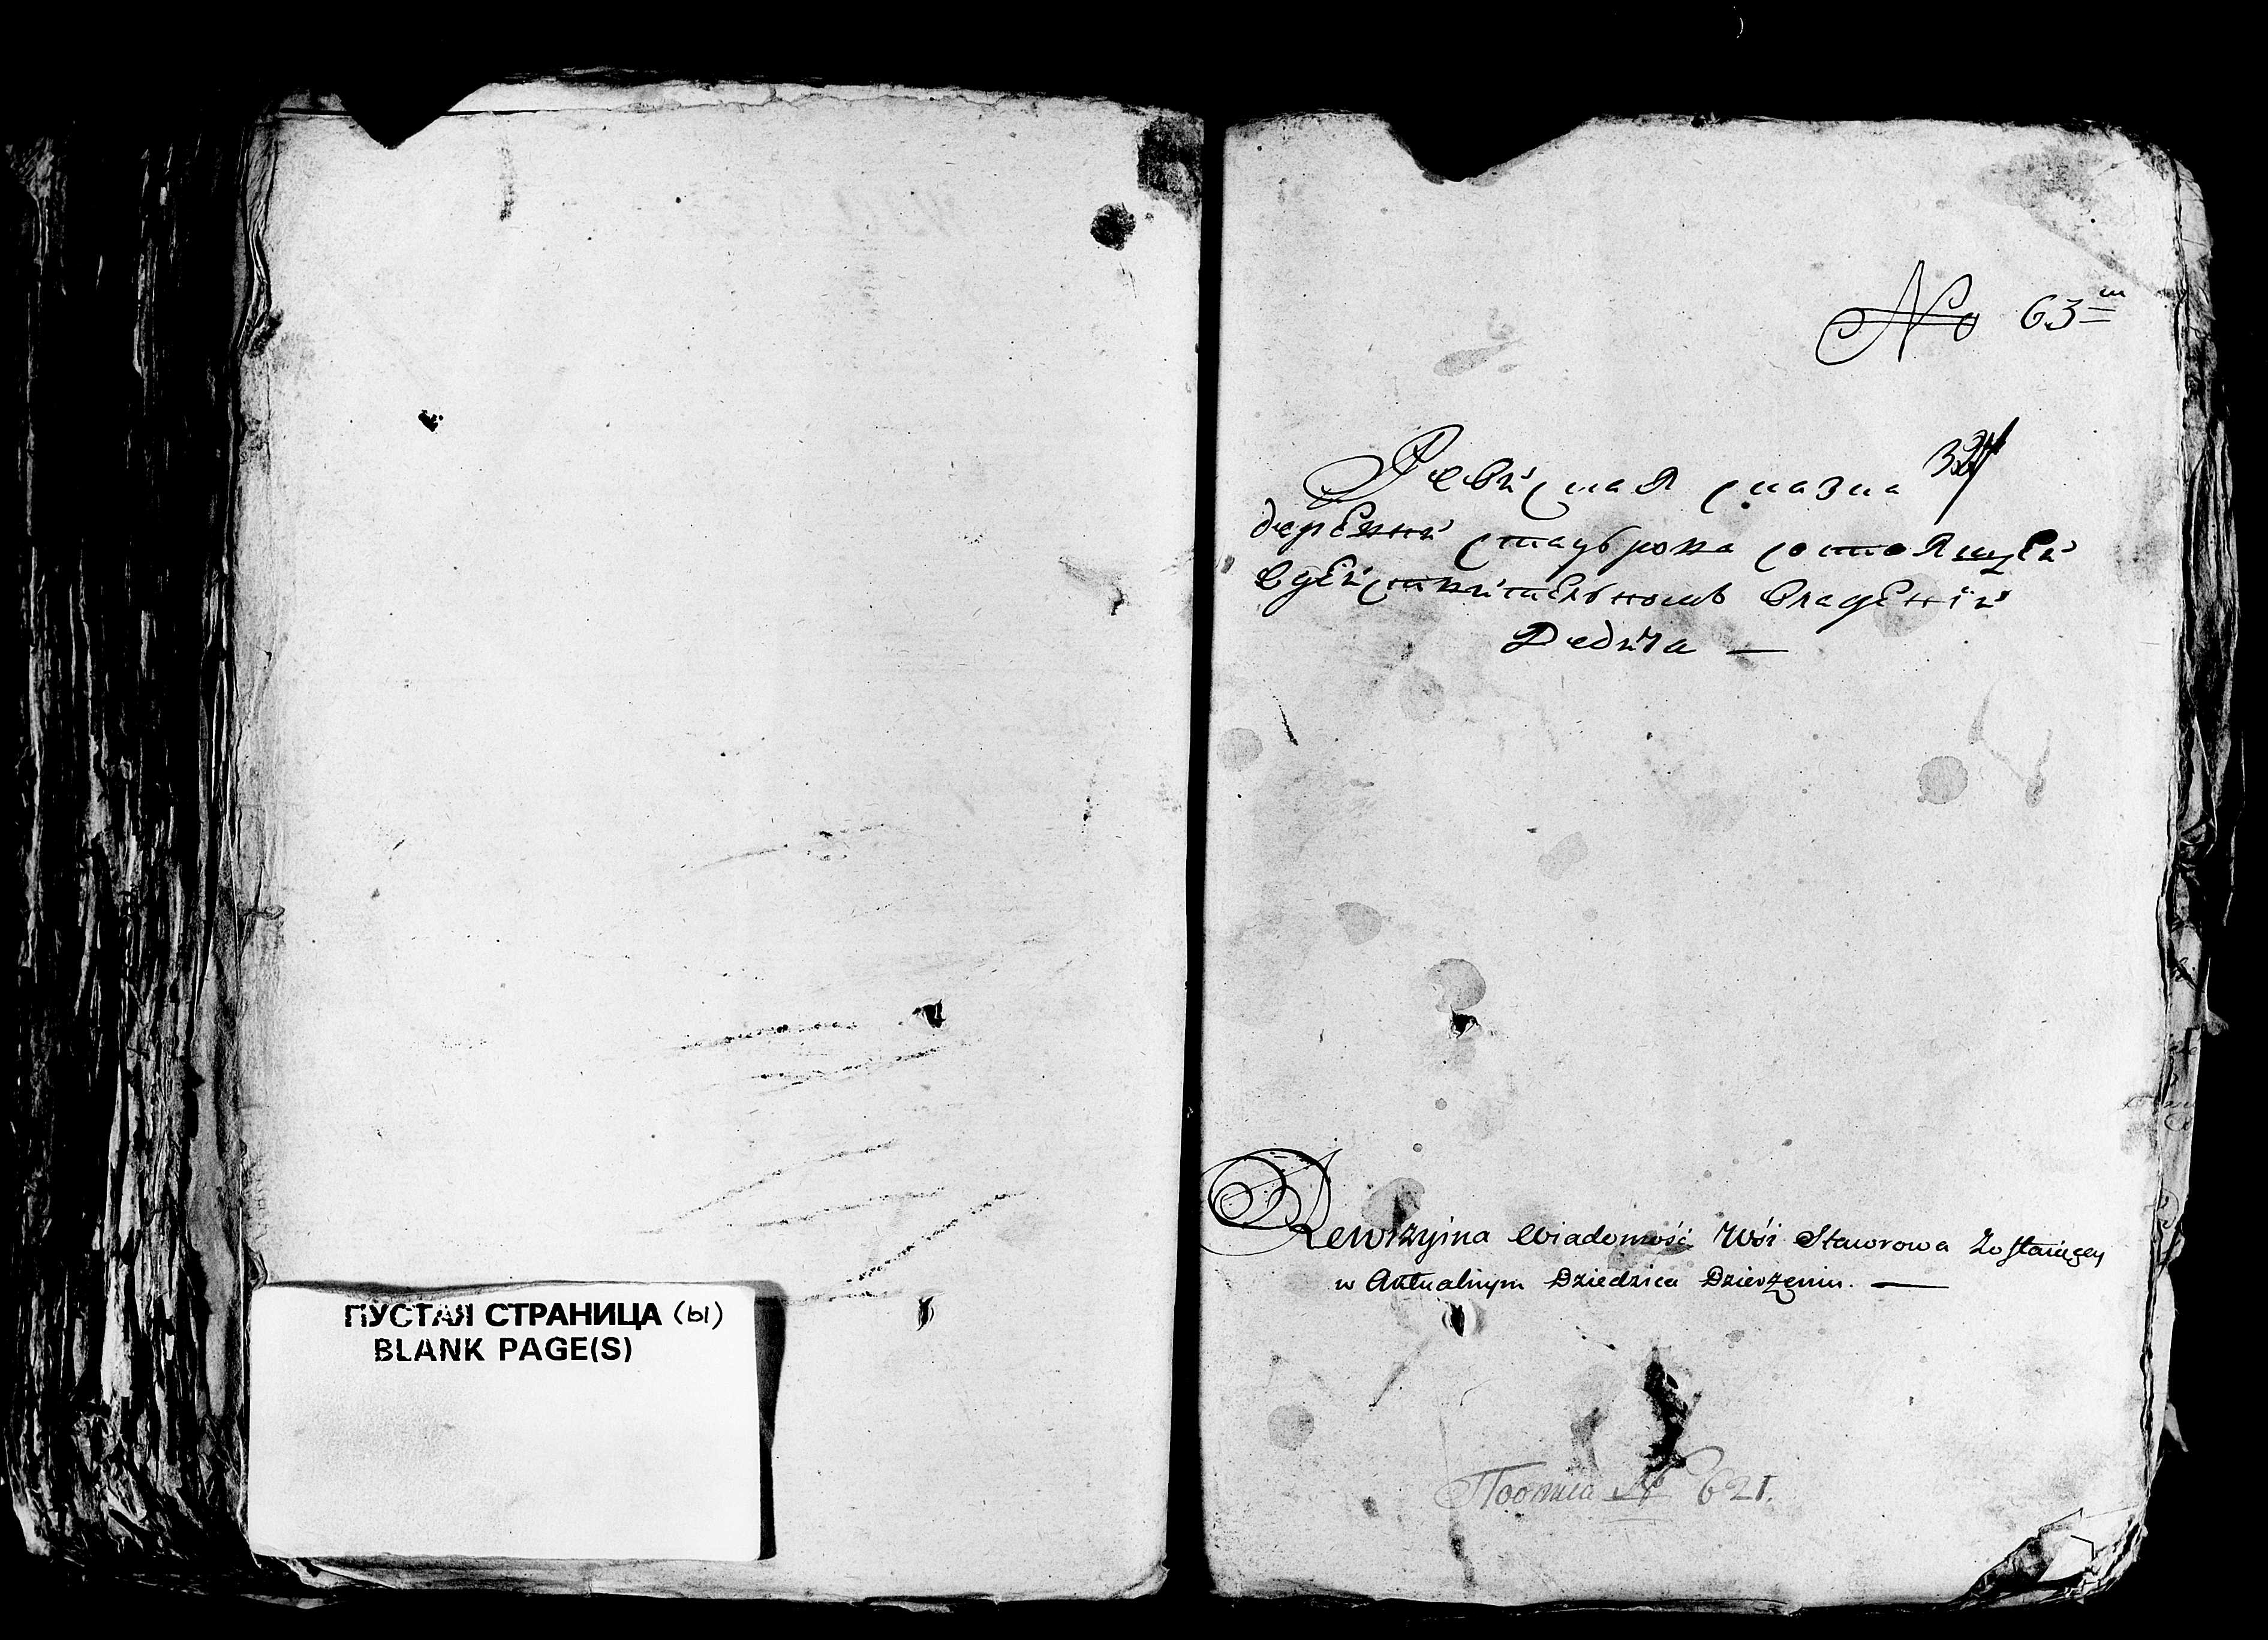 ПУСТАЯ СТРАНИЦА (ы)
BLANK PAGE(S)
No 63
Ревизская сказка
деревни Ставрова состоящей
в действительномъ владении
Дедича —
Rewizyina Wiadomość Wsi Stawrowa Zostaiącey
w Aktualnym Dziedzica Dzierżeniu. —
По описи № 621.